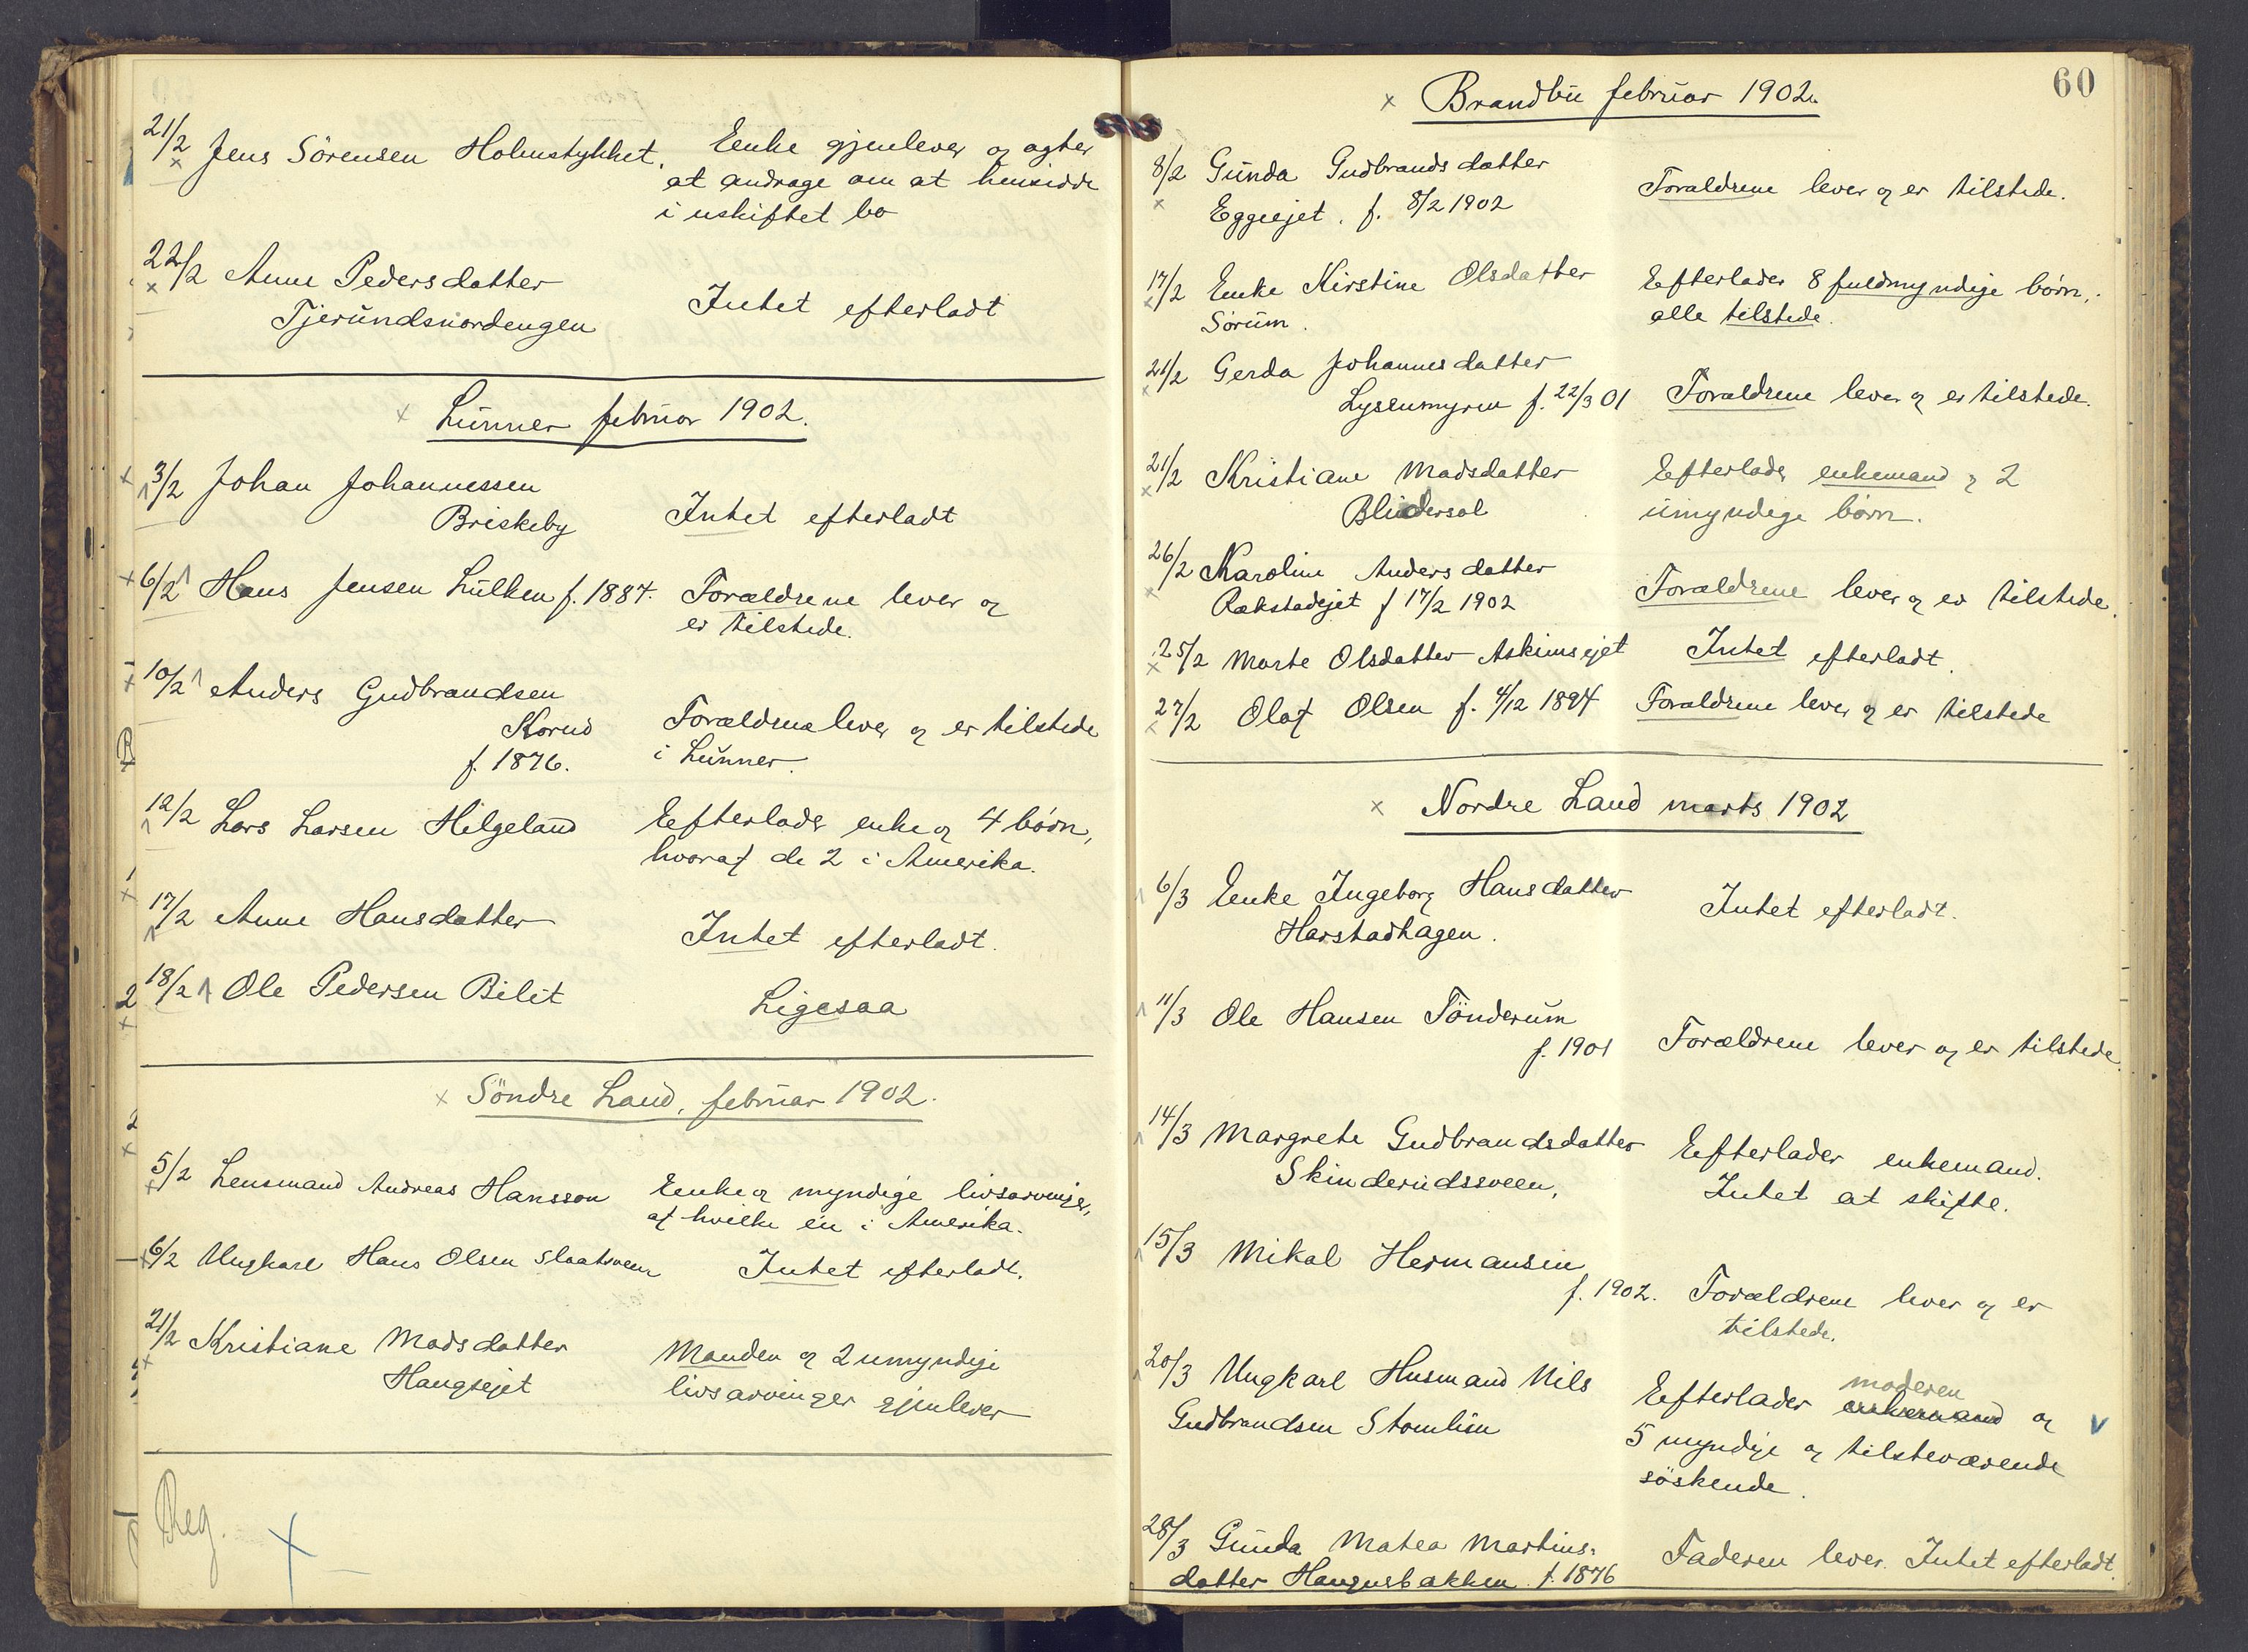 21/2 Jens Sörensen Holmstykket. Enke gjenlever og agter
at andrage om at hensidde
i uskiftet bo
22/2 Anne Pedersdatter
Tjerundsnordengen Intet efterladt
Lunner februar 1902.
3/2 Johan Johannessen
Briskeby Intet efterladt
6/2 Hans Jensen Lulken f. 1887. Forældrene lever og
er tilstede.
10/2 Anders Gudbrandsen
Korud Forældrene lever og er tilstede
f. 1876. i Lunner.
12/2 Lars Larsen Hilgeland Efterlader enke og 4 börn,
hvoraf de 2 i Amerika.
17/2 Anne Hansdatter Intet efterladt.
18/2 Ole Pedersen Bilit Ligesaa
Söndre Land, februar 1902.
5/2 Lensmand Andreas Hansson Enke og myndige livsarvinger,
af hvilke én i Amerika.
6/2 Ungkarl Hans Olsen Slaatsveen Intet efterladt.
21/2 Kristiane Madsdatter Manden og 2 umyndige
Haugsejet livsarvinger gjenlever
Reg.
60
Brandbu februar 1902.
8/2 Gunda Gudbrandsdatter Forældrene lever og er tilstede.
Eggeejet. f. 8/2 1902
17/2 Enke Kirstine Olsdatter Efterlader 8 fuldmyndige børn,
Sørum. alle tilstede.
21/2 Gerda Johannesdatter
Lysenmyren f. 22/3 01 Forældrene lever og er tilstede.
21/2 Kristiane Madsdatter Efterlader enkemand og 2
Blindersol umyndige børn.
26/2 Karoline Andersdatter
Rækstadejet f 17/2 1902 Forældrene lever og er tilstede.
25/2 Marte Olsdatter Askimsejet Intet efterladt.
27/2 Olaf Olsen f. 4/12 1897 Forældrene lever og er tilstede
Nordre Land marts 1902
6/3 Enke Ingeborg Hansdatter Intet efterladt.
Harstadhagen.
11/3 Ole Hansen Tönderum
f. 1901 Forældrene lever og er tilstede.
14/3 Margrete Gudbrandsdatter Efterlader enkemand.
Skinderudssveen, Intet at skifte.
15/3 Mikal Hermansen
f. 1902. Forældrene lever og er
tilstede.
20/3 Ungkarl Husmand Nils Efterlader enkemand moderen og
Gudbrandsen Stomlien 5 myndige og tilsteværende
söskende.
28/3 Gunda Matea Martins-
datter Haugnesbakken f. 1876 Faderen lever. Intet efterladt.